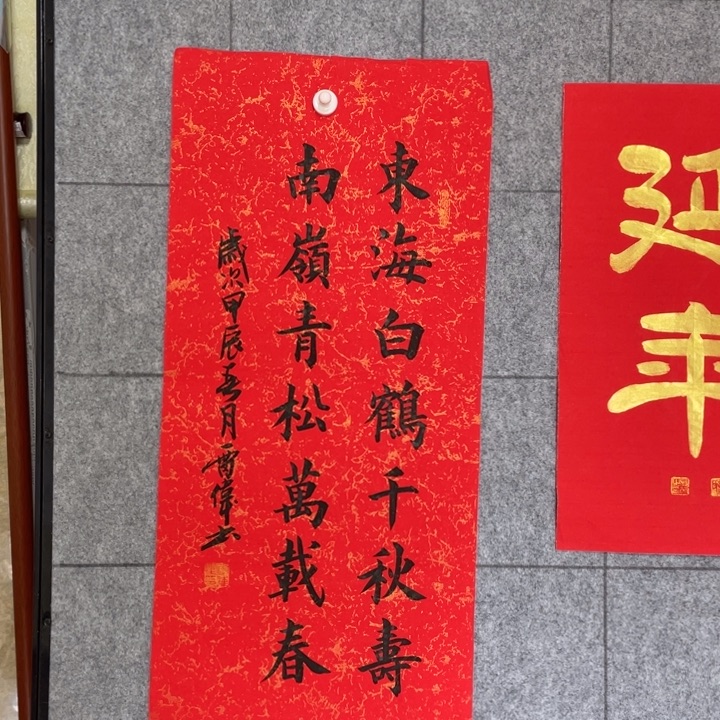 延年
東海白鶴千秋壽
南嶺青松萬載春
歲次甲辰五月雷偉書